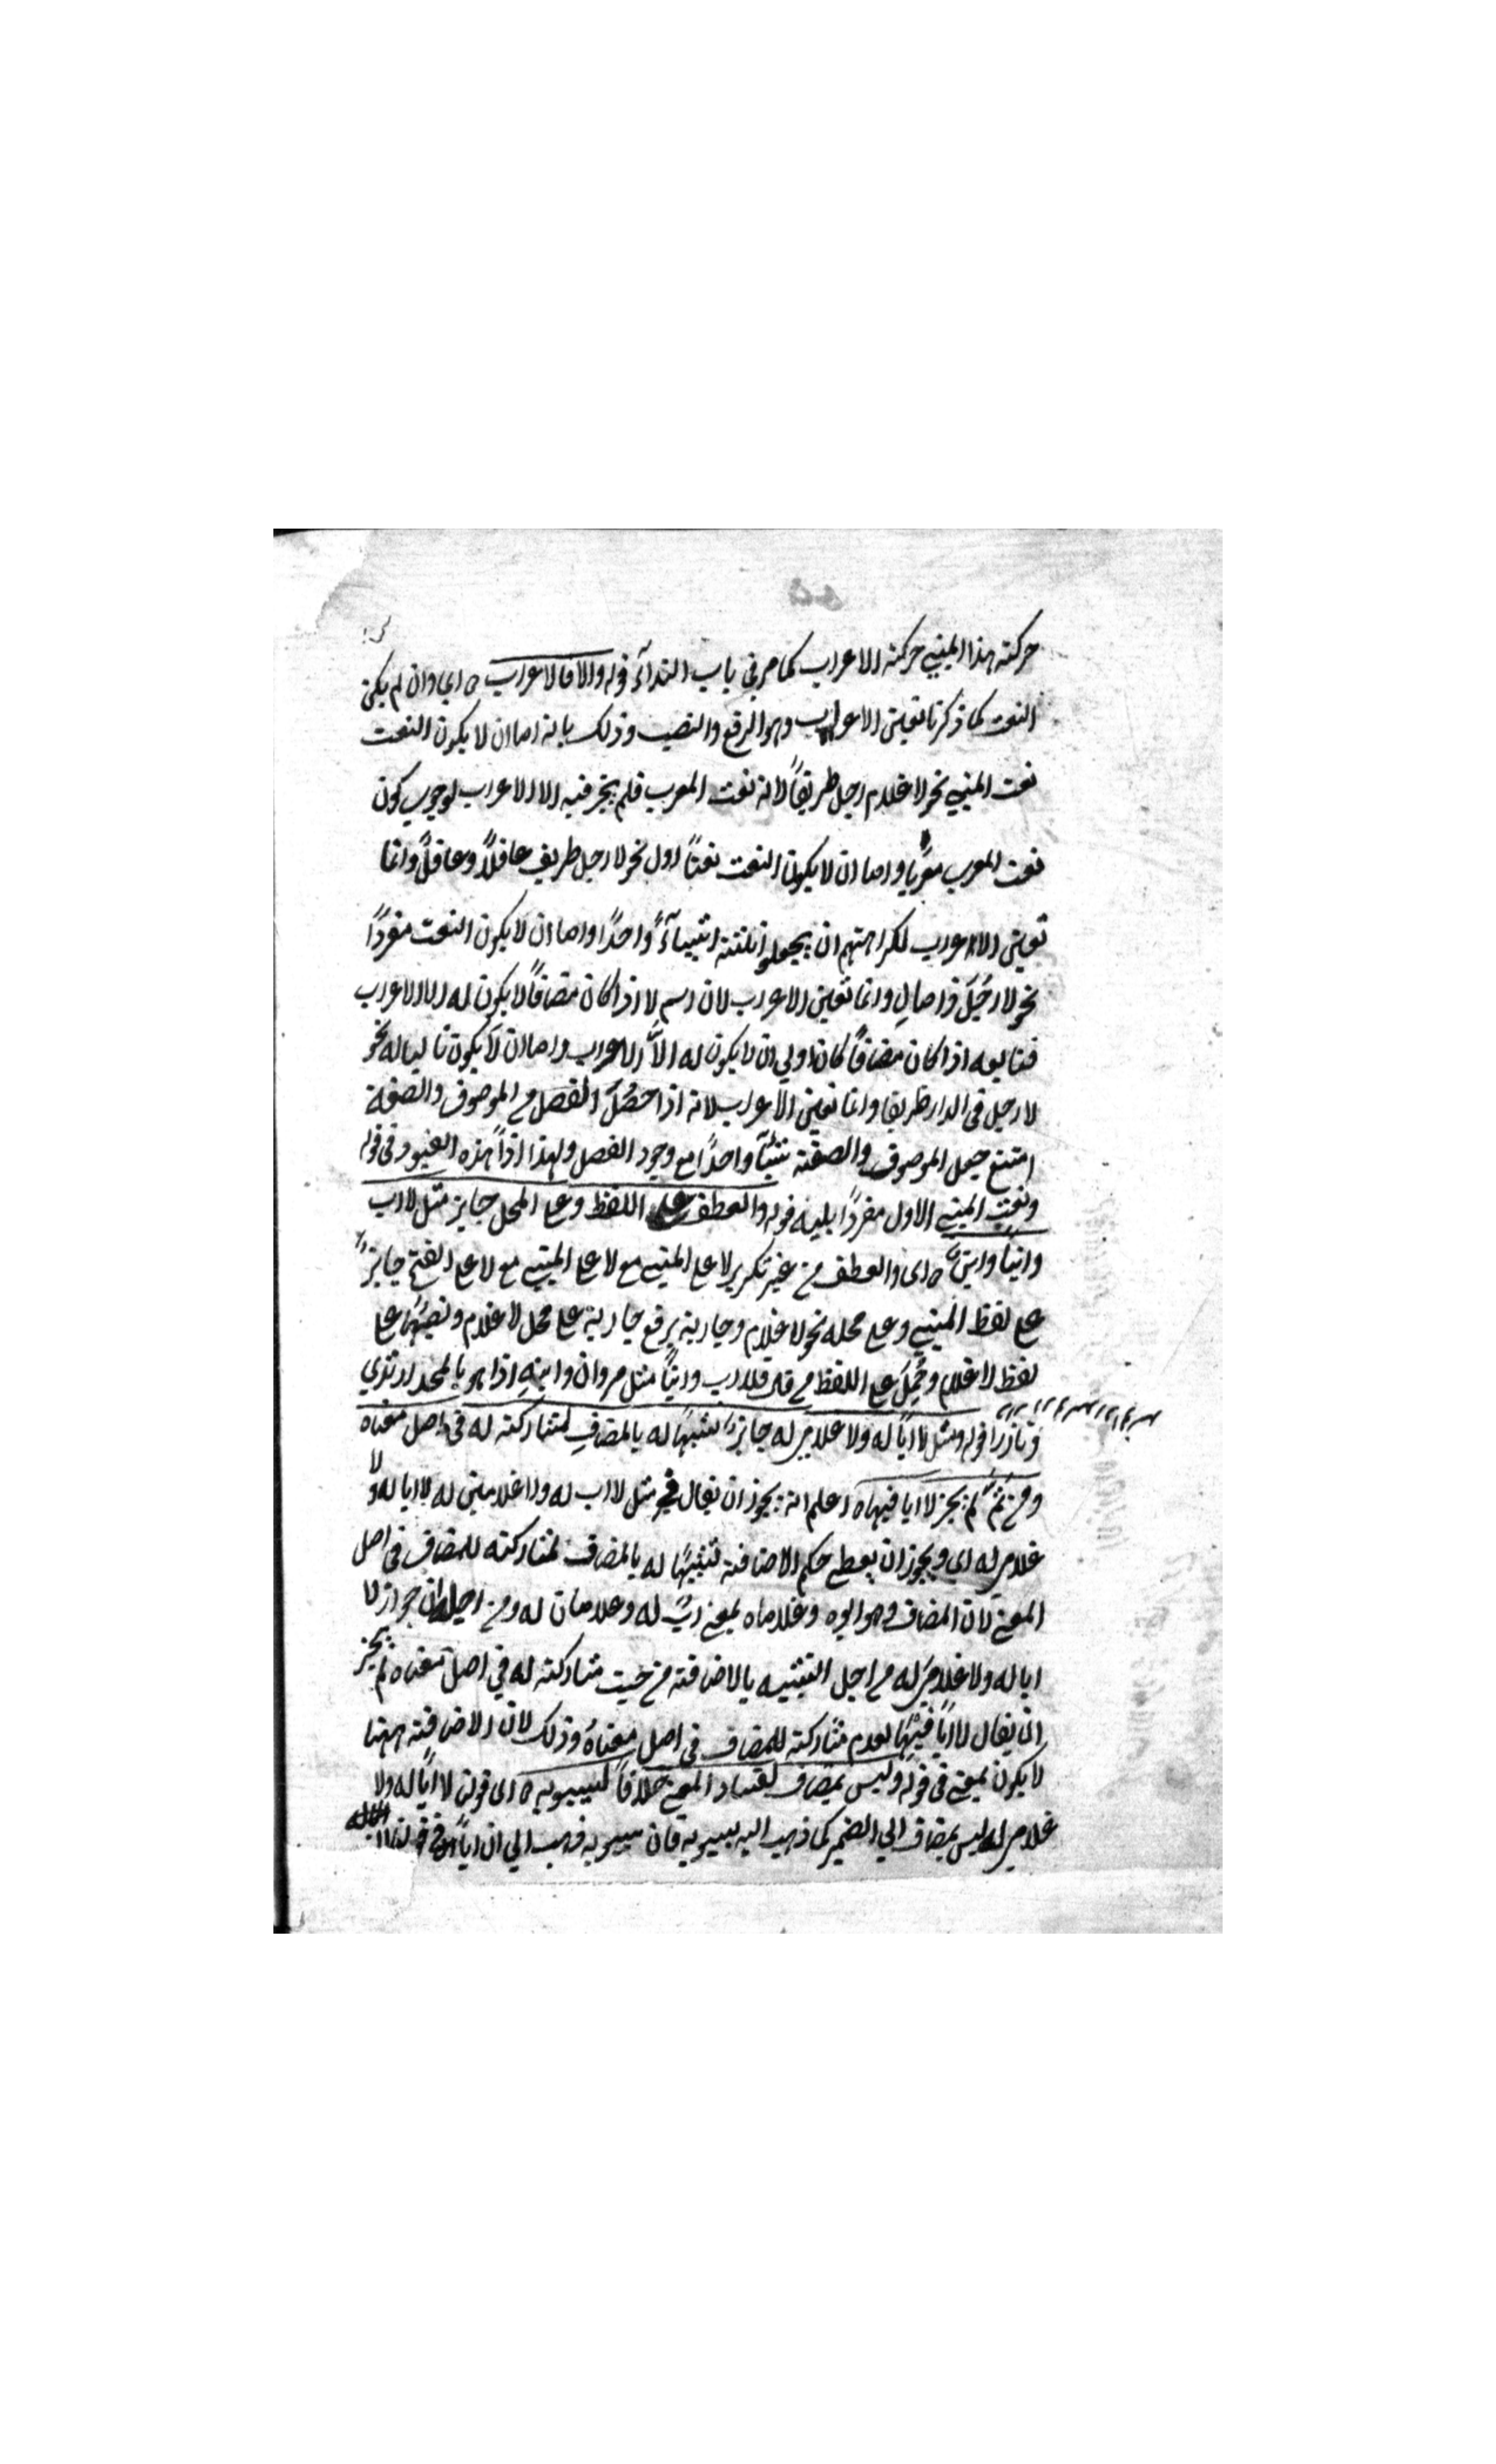 حركته هذا المبني حركته الاعراب كما مر في باب الندآء قوله والا فالاعراب ه اي وان لم يكن
النعت كما ذكرنا تعين الاعراب وهو الرفع والنصب وذلك بانه اما ان لا يكون النعت
نعت المبني نحو لا غلام رجل ظريفاً لانه نعت المعرب فلم يجز فيه الا الاعراب لوجوب كون
نعت المعرب معربا واما ان لا يكون النعت نعتاً اول نحو لا رجل ظريف عاقلاً وعاقلٌ وانما
تعين الاعراب لكراهتهم ان يجعلوا ثلثة اشياءً واحدًا واما ان لا يكون النعت مفردًا
نحو لا رجُلَ ذا مالِ وانما تعين الاعراب لان اسم لا اذا كان مضافاً لا يكون له الا الاعراب
فتابعه اذا كان مضافاً كان اولي ان لا يكون له الاّ الاعراب واما ان لا يكون تاليا له نحو
لا رجل في الدار ظريفا وانما تعين الاعراب لانه اذا حصُلَ الفصل مع الموصوف والصفة
امتنع جعل الموصوف والصفة شيئآ واحدًا مع وجود الفصل ولهذا اذاً هذه القيود في قوله
ونعت المبني الاول مفردًا يليه قوله والعطف على اللفظ وعلى المحل جايز مثل لا اب
وابنا وابنٌ ه اي والعطف من غير تكرير لا على المبني مع لا على المبني مع لا على الفتح جايزٌ
على لفظ المبني وعلى محله نحو لا غلام وجارية برفع جارية على محل لا غلام ونصبُها على
لفظ لا غلام وحُمِلَ على اللفظ في قوله فلا اب وابناً مثل مروان وابنهِ اذا هو بالمجد ارتدي
وتازرا قوله ومثل لا اباً له ولا غلامي له جايزٌ لشبهًا له بالمضافِ لمشاركته له في اصل معناه
ومن ثمّ لم يجز لا ابا فيها ه اعلم انه يجوز ان يقال في مثل لا اب له ولا غلامين له لا ابا له ولا
غلامي له اي ويجوز ان يعطى حكم الاضافة تشبيهًا له بالمضاف لمشاركته للمضاف في اصل
المعنى لان المضاف وهو ابوه وغلاماه بمعنى ابٌ له وغلامان له ومن اجل ان جواز لا
ابا له ولا غلامي له من اجل التشبيه بالاضافة من حيث مشاركته له في اصل معناه لم يجز
ان يقال لا اباً فيْها لعدم مشاركته للمضاف في اصل معناهُ وذلك لان الاضافة ههنا
لا يكون بمعنى في قوله وليس بمضاف لفساد المعنى خلافاً لسيبويه ه اي قوله لا اباً له ولا
غلامي له ليس بمضاف الي الضمير كما ذهب اليه سيبويه فان سيبويه ذهب الي ان اباً